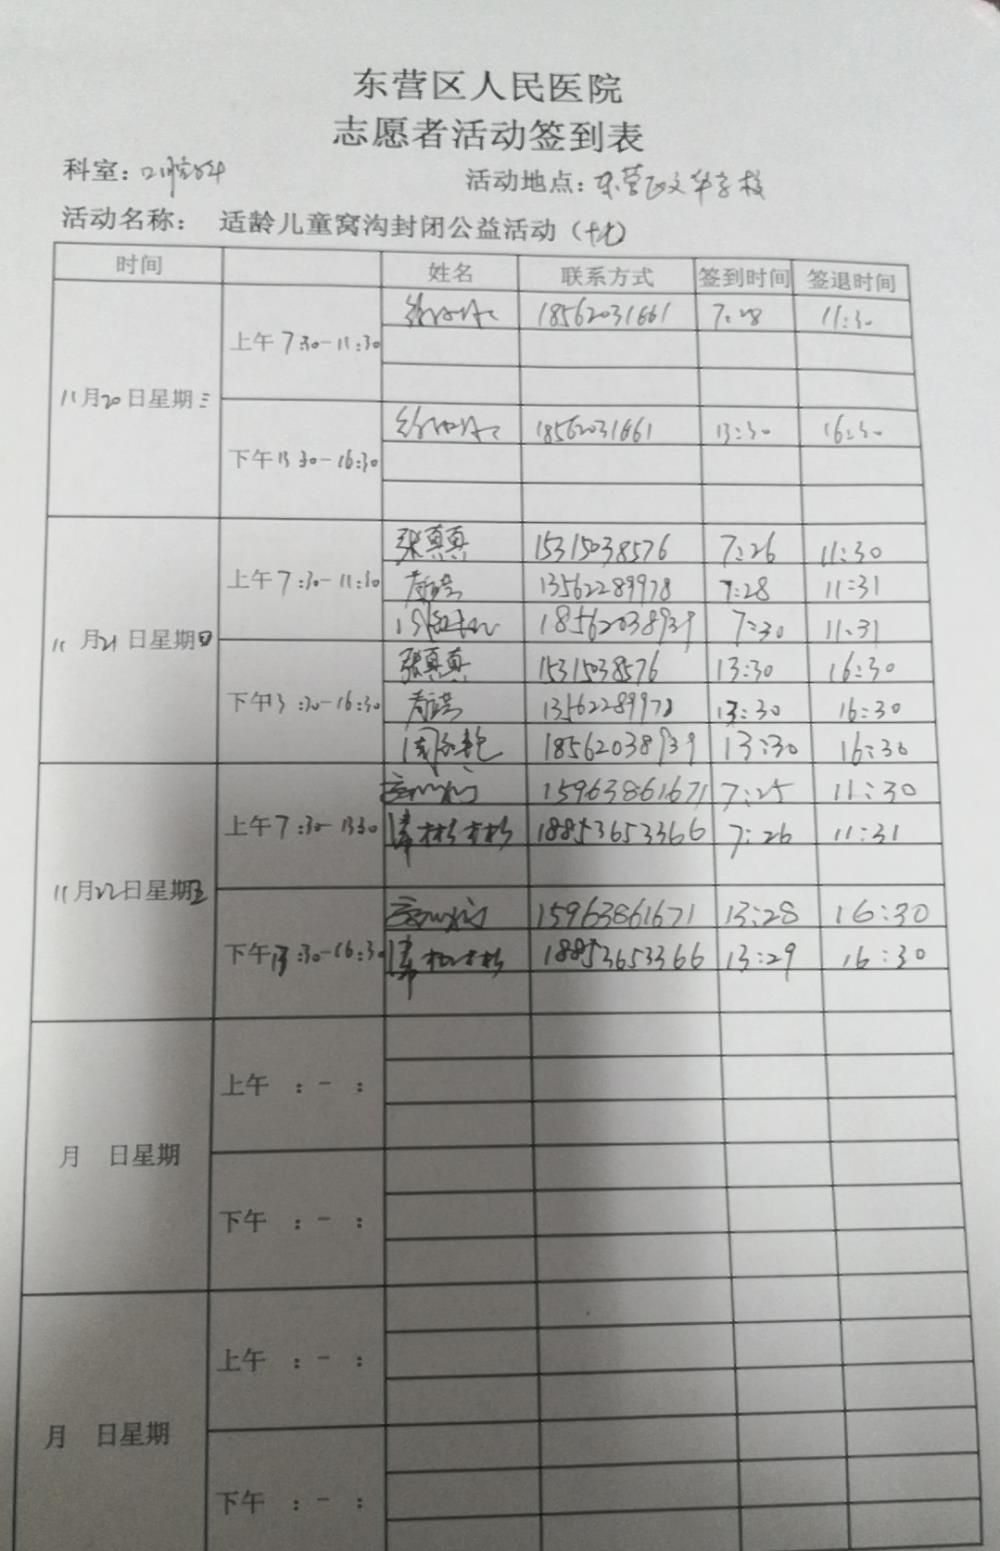 东营区人民医院
志愿者活动签到表
科室：口腔科 活动地点：东营区文华学校
活动名称： 适龄儿童窝沟封闭公益活动（十七）
时间 姓名 联系方式 签到时间 签退时间
11月20日星期三 上午 7:30-11:30 18562031661 7:28 11:30
下午 13:30-16:30 18562031661 13:30 16:30
11月21日星期四 上午 7:30-11:30 张真真 15315038576 7:26 11:30
13562289978 7:28 11:31
18562038939 7:30 11:31
下午13:30-16:30 张真真 15315038576 13:30 16:30
13562289978 13:30 16:30
18562038939 13:30 16:30
11月22日星期五 上午7:30-1130 15963861671 7:25 11:30
18853653366 7:26 11:31
下午13:30-16:30 15963861671 13:28 16:30
18853653366 13:29 16:30
月 日星期 上午 ：－ ：
下午 ：－ ：
月 日星期 上午 ：－ ：
下午 ：－ ：